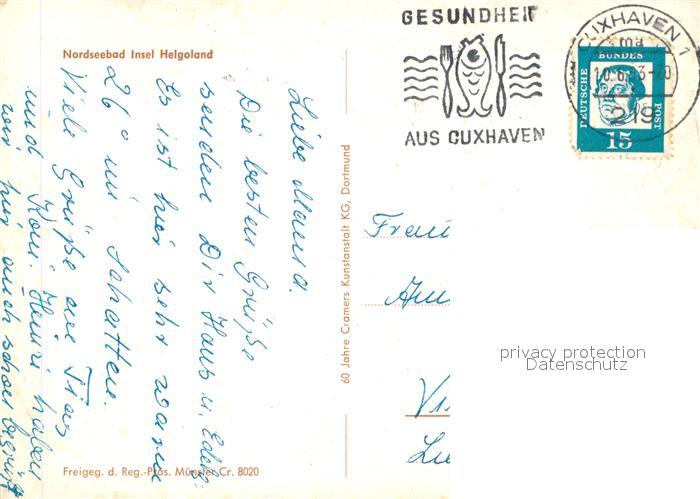 Nordseebad Insel Helgoland
Liebe Mama.
Die besten Grüße
senden Dir Hans u. Edith.
Es ist hier sehr warm
26° im Schatten.
Viele Grüße an
und Heini haben
wir hier auch schon
Freigeg. d. Reg.-Präs. Münster Cr. 8020
60 Jahre Cramers Kunstanstalt KG, Dortmund
GESUNDHEIT
AUS CUXHAVEN
CUXHAVEN 1
219
DEUTSCHE
BUNDES
POST
15
Frau
privacy protection
Datenschutz